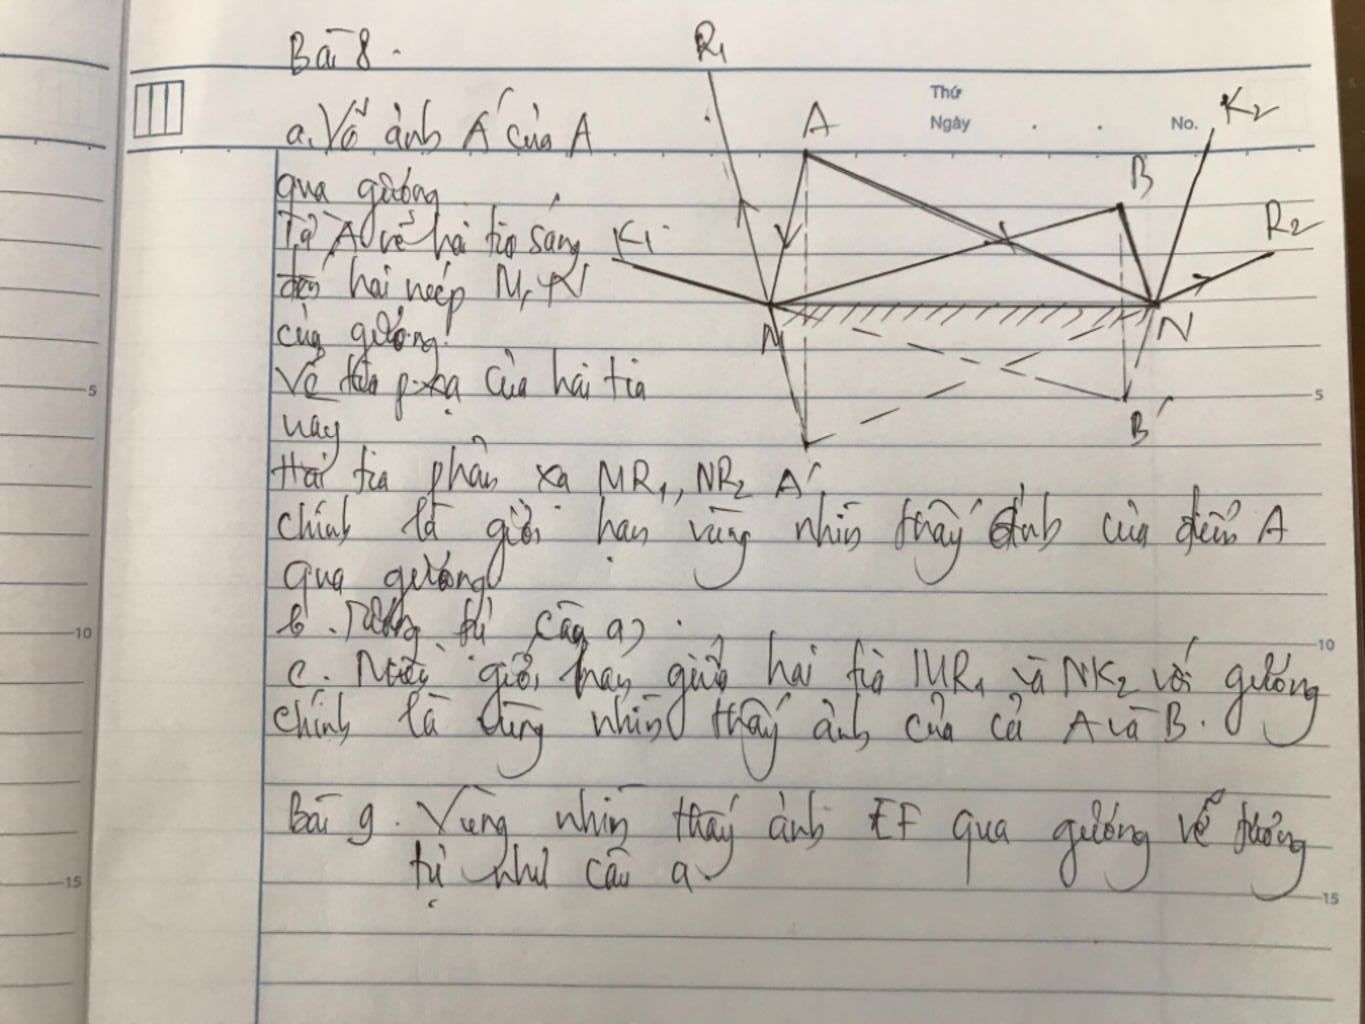 Bài 8.
R1
Thứ
Ngày . . No.
K2
a. Vẽ ảnh A' của A
A
B
qua gương
R2
Từ A vẽ hai tia sáng
K1
đến hai mép M, N
của gương.
M
N
Vẽ tia p.xạ của hai tia
5
5
này
B'
Hai tia phản xạ MR1, NR2
A'
chính là giới hạn vùng nhìn thấy ảnh của điểm A
qua gương
b. Tương tự câu a)
10
10
c. giới hạn giữa hai tia MR1 và NK2 với gương
chính là vùng nhìn thấy ảnh của cả A và B.
Bài 9. Vùng nhìn thấy ảnh EF qua gương vẽ tương
tự như câu a
15
15